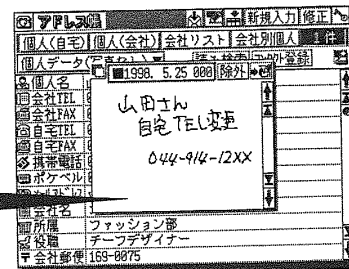 アドレス帳 新規入力 修正
個人(自宅) 個人(会社) 会社リスト 会社別個人 1件
個人データ
1998. 5.25 000 除外
山田さん
自宅TEL変更
044-914-12XX
個人名
会社TEL
会社FAX
自宅TEL
自宅FAX
携帯電話
ポケベル
会社名
所属 ファッション部
役職 チーフデザイナー
〒会社郵便 169-0075